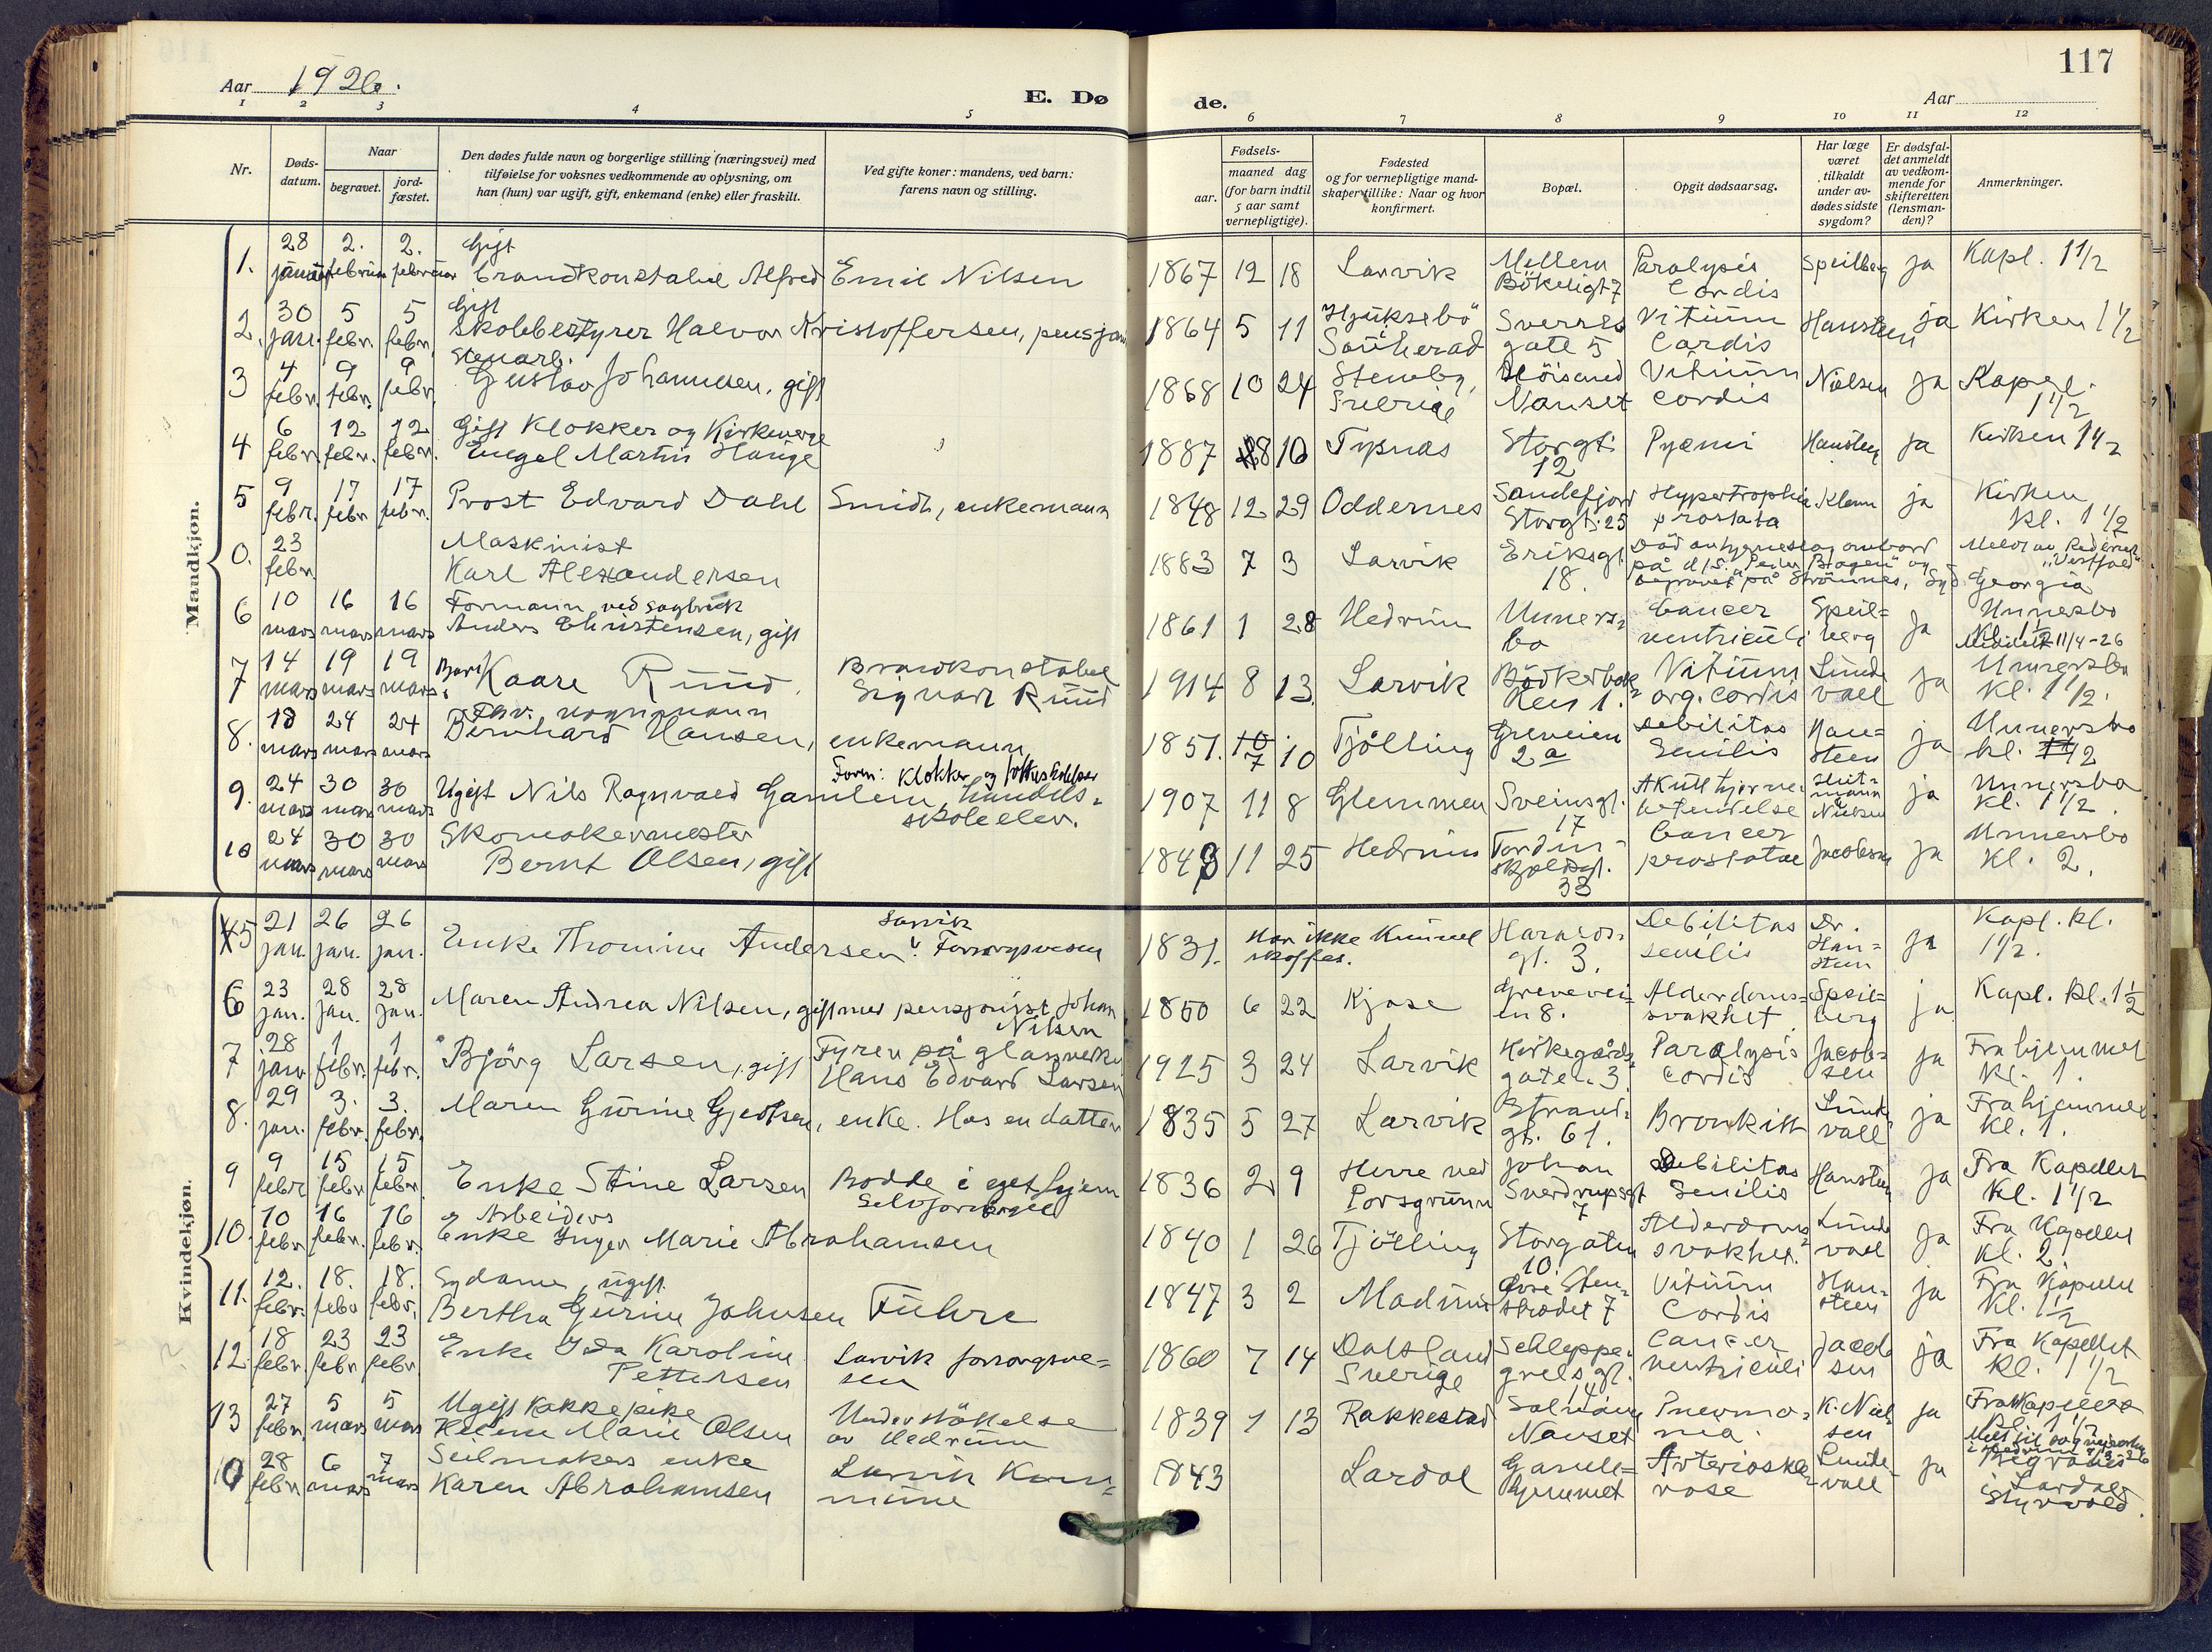 117
Aar 1926.
E. Døde.
Aar
1 2 3 4 5 6 7 8 9 10 11 12
Nr.
Døds-datum.
Naar
begravet.
jord-fæstet.
Den dødes fulde navn og borgerlige stilling (næringsvei) med
tilføielse for voksnes vedkommende av oplysning, om
han (hun) var ugift, gift, enkemand (enke) eller fraskilt.
Ved gifte koner: mandens, ved barn:
farens navn og stilling.
Fødsels-
aar.
maaned dag
(for barn indtil
5 aar samt
vernepligtige).
Fødested
og for vernepligtige mand-
skaper tillike: Naar og hvor
konfirmert.
Bopæl.
Opgit dødsaarsag.
Har læge
været
tilkaldt
under av-
dødes sidste
sygdom?
Er dødsfal-
det anmeldt
av vedkom-
mende for
skifteretten
(lensman-
den)?
Anmerkninger.
Mandkjøn.
1. 28 januar 2. februar 2. februar Gift brandkonstabel Alfred Emil Nilsen 1867 12 18 Larvik Mellem Bökeligt 7 Paralysis Cordis Speilberg ja Kapl. 1 1/2
2. 30 jan. 5 febr. 5 febr. Gift Skolebestyrer Halvor Kristoffersen, pensjon 1864 5 11 Hjuksebö Sauherad Sverres gate 5 Vitium Cordis Hansteen ja Kirken 1 1/2
3 4 febr. 9 febr. 9 febr. Stenarb. Gustav Johannessen, gift 1868 10 24 Sverige Nanset Vitium cordis Nielsen ja Kapel. 1 1/2
4 6 febr. 12 febr. 12 febr. Gift Klokker og Kirkeverge Engel Martin Hauge 1887 8 10 Tysnæs Storgt. 12 Pyæmi Hansteen ja Kirken 1 1/2
5 9 febr. 17 febr. 17 febr. Prost Edvard Dahl Smidt, enkemann 1848 12 29 Oddernes Sandefjord Storgt. 25 Hypertrophia prostata Klem ja Kirken kl. 1 1/2
0. 23 febr. Maskinist Karl Alexandersen 1883 7 3 Larvik Eriksgt. 18. Död av hjerneslag ombord på d/S. "Peder Bogen" og begravet på Strömnes, Syd Georgia
6 10 mars 16 mars 16 mars Formann ved sagbruk Anders Christensen, gift 1861 1 28 Hedrum Unnersbo Cancer ventriculi Speilberg ja Unnersbo Kl. 1 1/2 Meddelt 11/4-26
7 14 mars 19 mars 19 mars Barn Kaare Ruud. Brandkonstabel Sigvart Ruud 1914 8 13. Larvik Bödkerbakken 1. Vitium org. cordis Lundevall ja Unnersbo Kl. 1 1/2.
8. 18 mars 24 mars 24 mars Bernhard Hansen, enkemann 1851. 7 10 Tjölling Greveien 2a debilitas Senilis Hansteen ja Unnersbo kl. 1 1/2
9. 24 mars 30 mars 30 mars Ugift Nils Ragnvald Gamlem, handelsskoleelev. 1907 11 8 Glemmen Sveinsgt. 17 Akutt hjernebetendelse Nielsen ja Unnersbo Kl. 1 1/2
10 24 mars 30 mars 30 mars Skomakermester Bernt Olsen, gift 1843 11 25 Hedrum Tordenskjoldsgt. 33 Cancer prostatae Jacobsen ja Unnersbo Kl. 2.
Kvindekjøn.
5 21 jan. 26 jan. 26 jan. Enke Thomine Andersen Larvik Forsorgsvesen 1831. Har ikke kunnet skaffes. gt. 3. Debilitas senilis Dr. Hansteen ja Kapl. kl. 1 1/2.
6 23 jan. 28 jan. 28 jan. Maren Andrea Nilsen, gift med pensjonist Johan Nilsen 1850 6 22 Kjose Greveveien 8. Alderdomssvakhet Speilberg ja Kapl. kl. 1 1/2
7 28 jan 1 febr. 1 febr. Björg Larsen, gift Fyren på glassverk Hans Edvard Larsen 1925 3 24 Larvik Kirkegårdsgaten 3. Paralysis cordis Jacobsen ja Fra hjemmet Kl. 1.
8. 29 jan. 3. febr. 3. febr. Maren Gurine Gjertsen, enke. Hos en datter 1835 5 27 Larvik Strandgt. 61. Bronkitt Lundevall ja Fra hjemmet Kl. 1.
9 9 febr 15 febr 15 febr. Enke Stine Larsen Bodde i eget hjem Selvforsörget 1836 2 9 Herre ved Porsgrunn Johan Sverdrupsgt 7 Debilitas Senilis Hansteen ja Fra Kapellet Kl. 1 1/2
10. 10 febr 16 febr. 16 febr. Arbeiders Enke Inger Marie Abrahamsen 1840 1 26 Tjölling Storgaten 10. Alderdomssvakhet Lundevall ja Fra Kapellet Kl. 2.
11. 12. febr. 18. febr 18. febr. Sydame, ugift Bertha Gurine Johnsen Fuhre 1847 3 2 Madum Övre Stenströdet 7 Vitium Cordis Hansteen ja Fra Kapellet Kl. 1 1/2
12. 18 febr. 23 febr 23 febr Enke Ida Karoline Pettersen Larvik forsorgsvesen 1860 7 14 Dalsland Sverige Schleppegrelsgt. 14 Cancer ventriculi Jacobsen ja Fra Kapellet Kl. 1 1/2
13 27 febr. 5 mars 5 mars Ugift Kokkepike Helene Marie Olsen Understöttelse av Hedrum 1839 1 13 Rakkestad Nanset Pneumonia. K. Nielsen ja Fra Kapellet Kl. 1 1/2
10 28 febr 6 mars 7 mars Seilmakers enke Karen Abrahamsen Larvik Kommune 1843 Lardal Gamlehjemmet Arteriosklerose Lundevall ja Begraves i Lardal Styrvold.